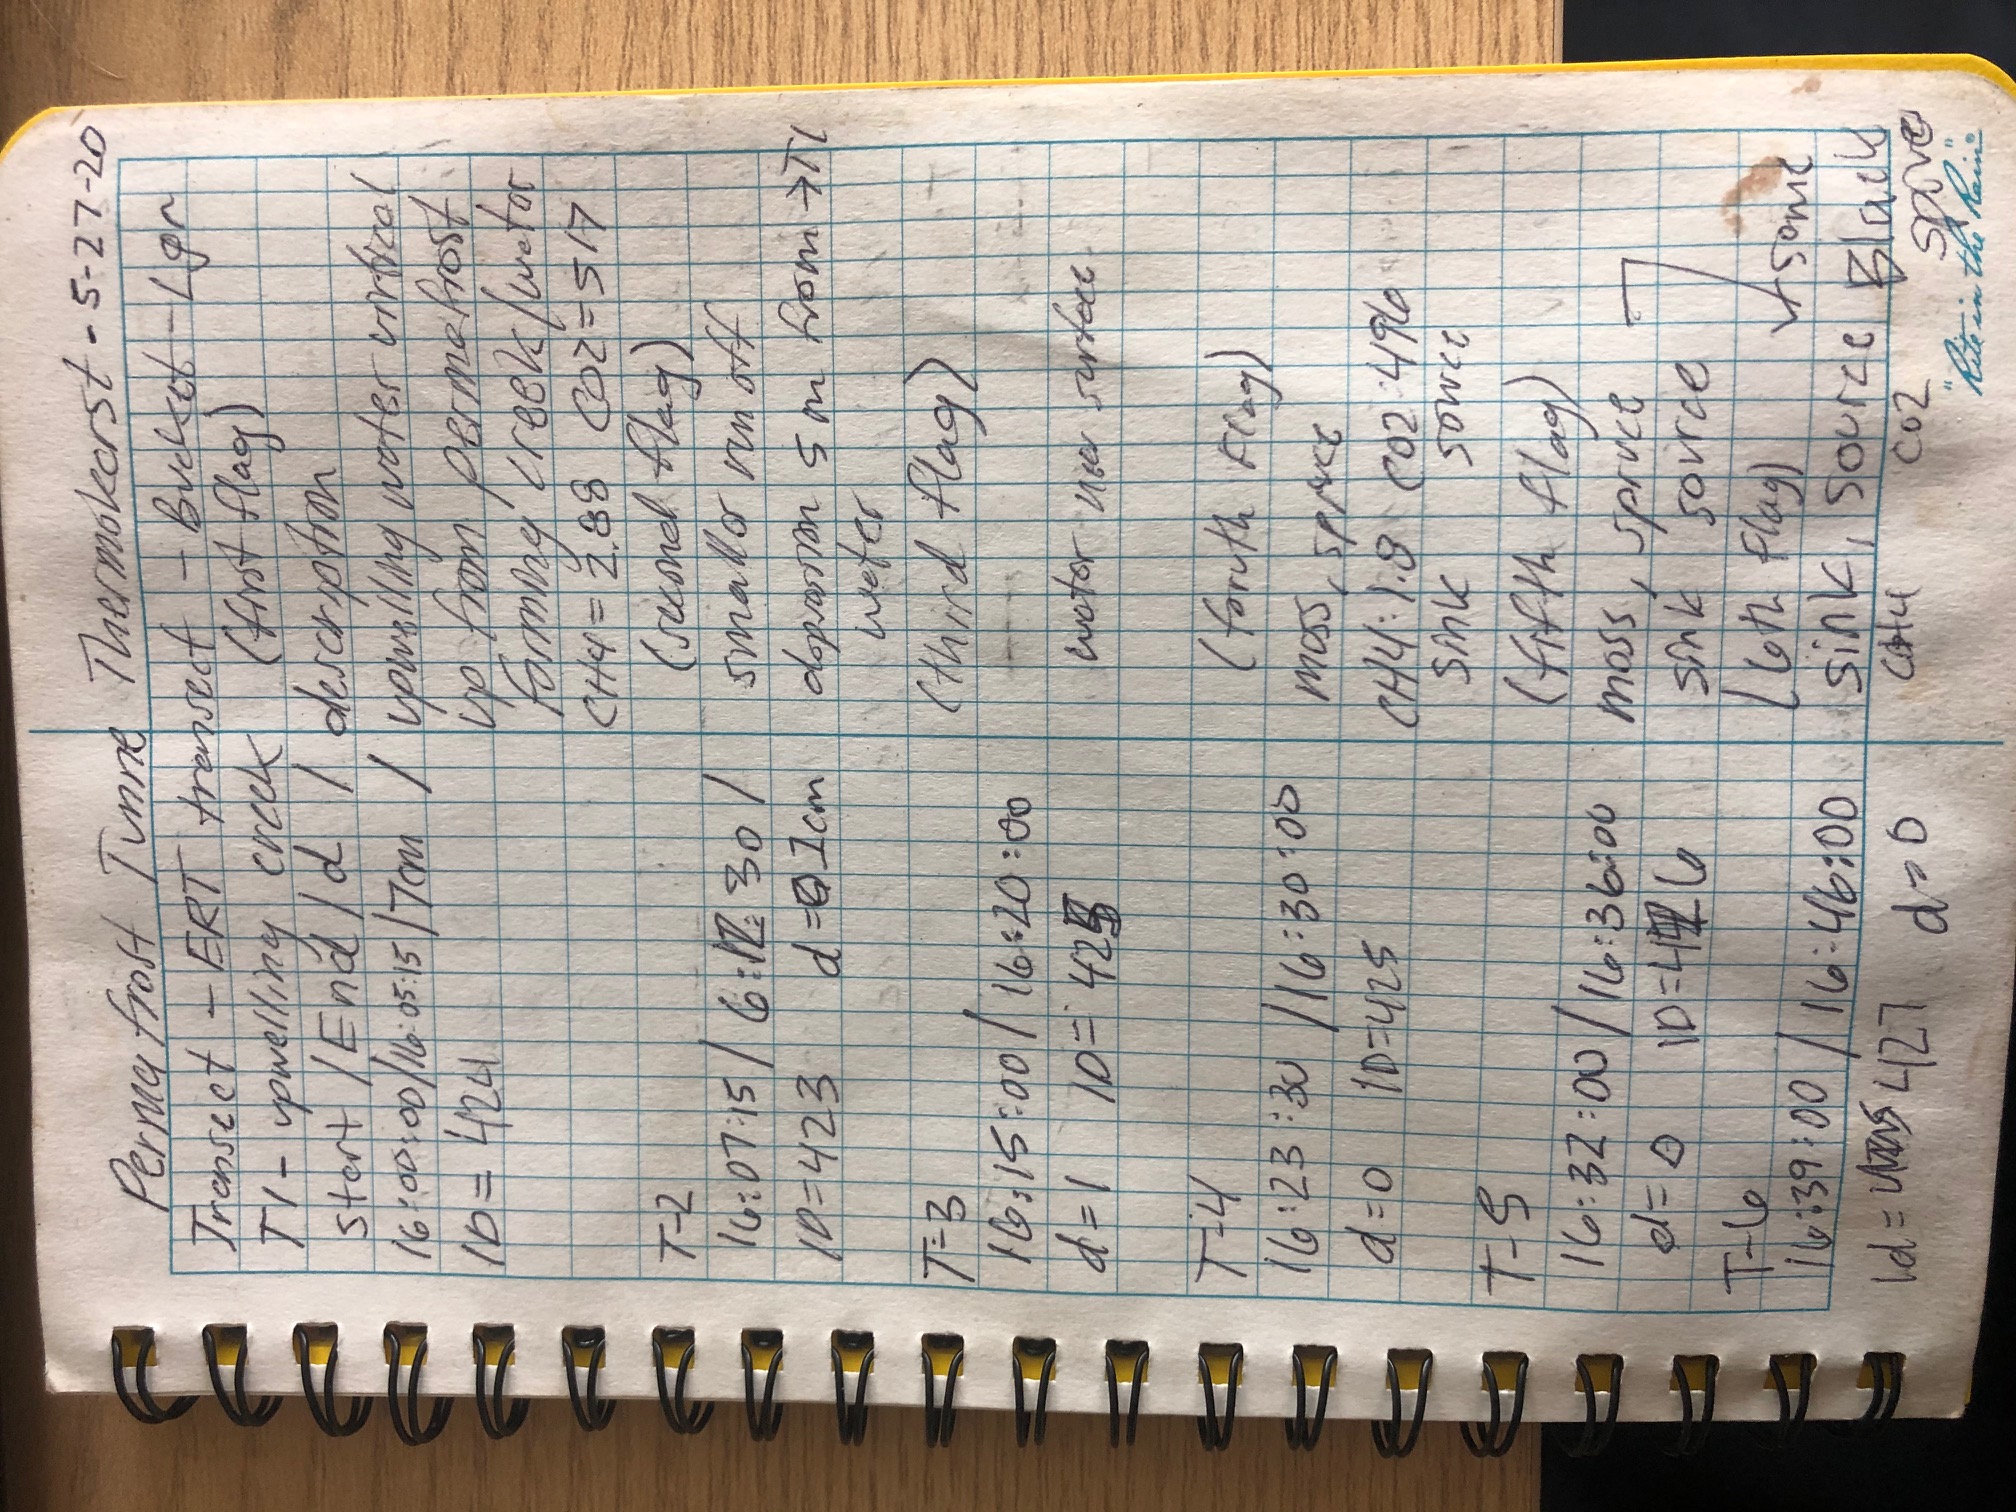 Permafrost Tunne Thermokarst - 5-27-20
Transect - ERT transect - Bucket - Lgr
T1 - upwelling creek (first flag)
start / End / d / description
16:00:00/16:05:15/7cm / upwelling water virtical
ID = 424 up from permafrost
forming creek/water
CH4 = 2.88 CO2 = 517
T-2 (second flag)
16:07:15 / 6:12:30 / smaller run off
ID=423 d=01cm 5 m from →T1
water
T-3 (third flag)
16:15:00 / 16:20:00
d=1 ID= water near surface
T-4 (foruth Flag)
16:23:30 / 16:30:00 moss, spruce
d=0 ID=425 CH4:1.8 CO2:496
sink source
T-5 (fifth flag)
16:32:00 / 16:36:00 moss, spruce
d=0 ID=426 sink source
T-6 (6th Flag)
16:39:00 / 16:46:00 sink, source
Id= 427 d=0 CH4 CO2
some
Black
spruce
"Rite in the Rain"